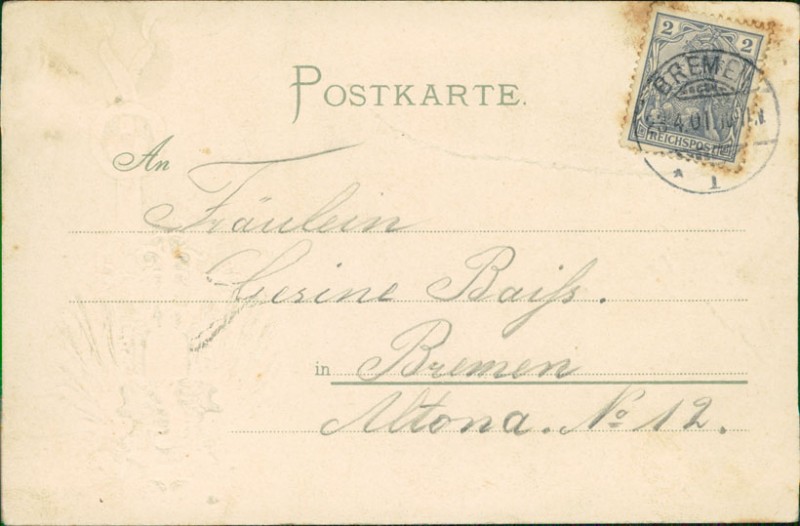 2 2
BREMEN
4.01
REICHSPOST
1
POSTKARTE.
An
Fräulein
Gesine Baiß.
in Bremen
Altona. No 12.